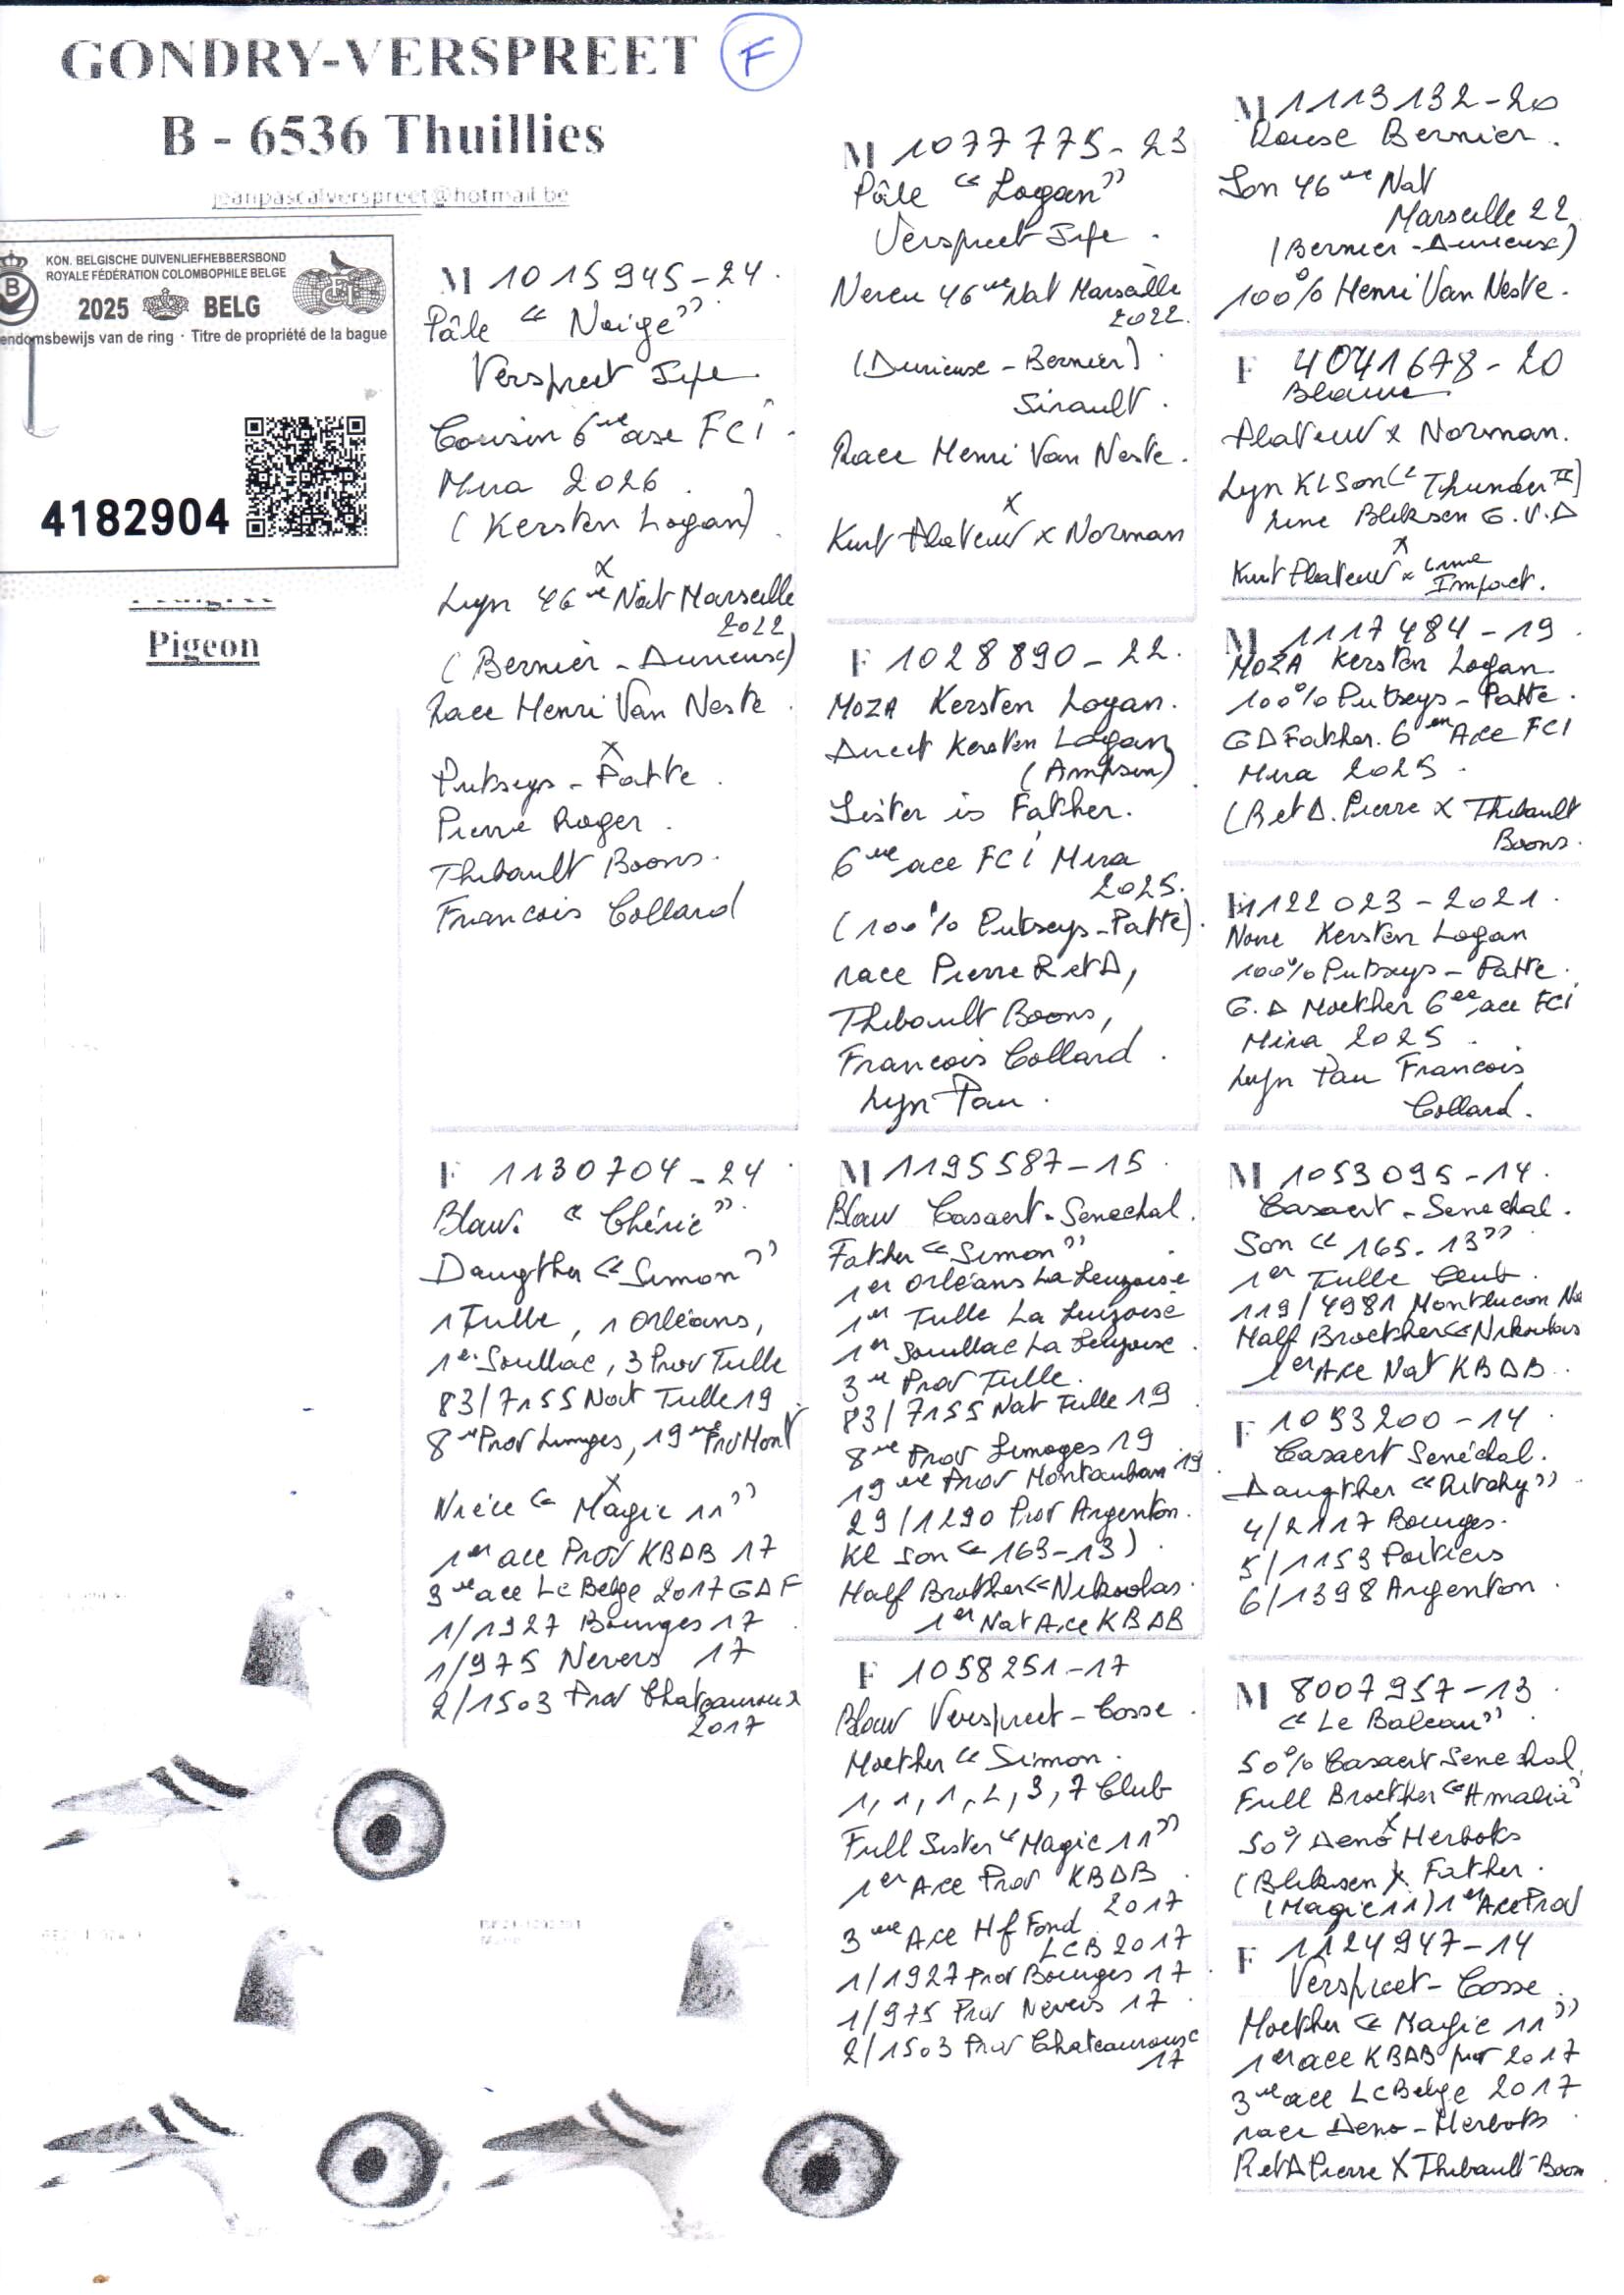 GONDRY-VERSPREET
F
B - 6536 Thuillies
jeanpascalverspreet@hotmail.be
KON. BELGISCHE DUIVENLIEFHEBBERSBOND
ROYALE FÉDÉRATION COLOMBOPHILE BELGE
2025 BELG
endomsbewijs van de ring · Titre de propriété de la bague
4182904
Pigeon
M 1015945-24.
Pâle " Neige "
Verspreet
Cousin 6 ase FCI
Mira 2026
(Kersten Logan)
x
Lyn 46 Nat Marseille
2022
(Bernier - Durieux)
Race Henri Van Neste
x
Putseys - Patte.
Pierre Roger.
Thibault Boons.
Francois Collard
F 1130704-24
Blauw. "Chérie"
Daugther "Simon"
1 Tulle, 1 Orléans,
1er Souillac, 3 Prov Tulle
83/7155 Nat Tulle 19
8 Prov Limoges, 19 Prov Mont
x
Nièce "Magic 11"
1er ace Prov KBDB 17
3 ace Lc Belge 2017 GDF
1/1927 Bourges 17
1/975 Nevers 17
2/1503 Prov Chateauroux
2017
M 1077775-23
Pâle "Logan"
Verspreet
Neveu 46 Nat Marseille
2022.
(Durieux - Bernier).
Sirault.
Race Henri Van Neste.
x
Kurt Plateuw x Norman
F 1028890-22.
MOZA Kersten Logan.
Direct Kersten Logan
Sister is Father.
6 ace FCI Mira
2025.
(100% Putseys-Patte).
race Pierre R et D,
Thibault Boons,
Francois Collard.
Lyn Pau.
M 1195587-15
Blauw Casaert-Senechal.
Father "Simon"
1er Orléans La Leuzoise
1er Tulle La Leuzoise
1er Souillac La Leuzoise.
3 Prov Tulle.
83/7155 Nat Tulle 19
8 Prov Limoges 19
19 Prov Montauban 19
29/1290 Prov Argenton.
Kl son " 163-13)
Half Brother "Nikolas.
1er Nat Ace KBDB
F 1058251-17
Blauw Verspreet-Cosse.
Moether "Simon.
1, 1, 1, 2, 3, 7 Club
Full Sister "Magic 11"
1er Ace Prov KBDB
2017
3 Ace Hf Fond
LCB 2017
1/1927 Prov Bourges 17
1/975 Prov Nevers 17
2/1503 Prov Chateauroux
17
M 1113132-20
Bernier.
Son 46 Nat
Marseille 22
(Bernier - Durieux)
100% Henri Van Neste.
F 4041678-20
Blauw
Plateuw x Norman.
Lyn Kl Son "Thunder II)
Line Bliksem G.V.D
x
Kurt Plateuw x Line
Impact.
M 1117484-19
MOZA Kersten Logan.
100% Putseys-Patte.
GD Father. 6 Ace FCI
Mira 2025.
(R et D. Pierre x Thibault
Boons.
F 1122023-2021.
Noire Kersten Logan
100% Putseys-Patte.
G.D Moether 6 ace FCI
Mira 2025.
Lyn Pau Francois
Collard.
M 1053095-14.
Casaert-Senechal.
Son "165-13"
1er Tulle Club.
119/4981 Montlucon Na
Half Broether "Nikolas
1er Ace Nat KBDB.
F 1093200-14
Casaert Senéchal.
Daugther "Ritchy"
4/2117 Bourges.
5/1153 Poitiers
6/1398 Argenton.
M 8007957-13
"Le Balcau"
50% Casaert Senechal
Full Broether "Amalia"
x
50% Deno Herbots
(Bliksem) Father.
(Magic 11) 1er Ace Prov
F 1124947-14
Verspreet-Cosse.
Moether "Magic 11"
1er ace KBDB prov 2017
3 ace Lc Belge 2017
race Deno-Herbots
R et D Pierre x Thibault-Boon